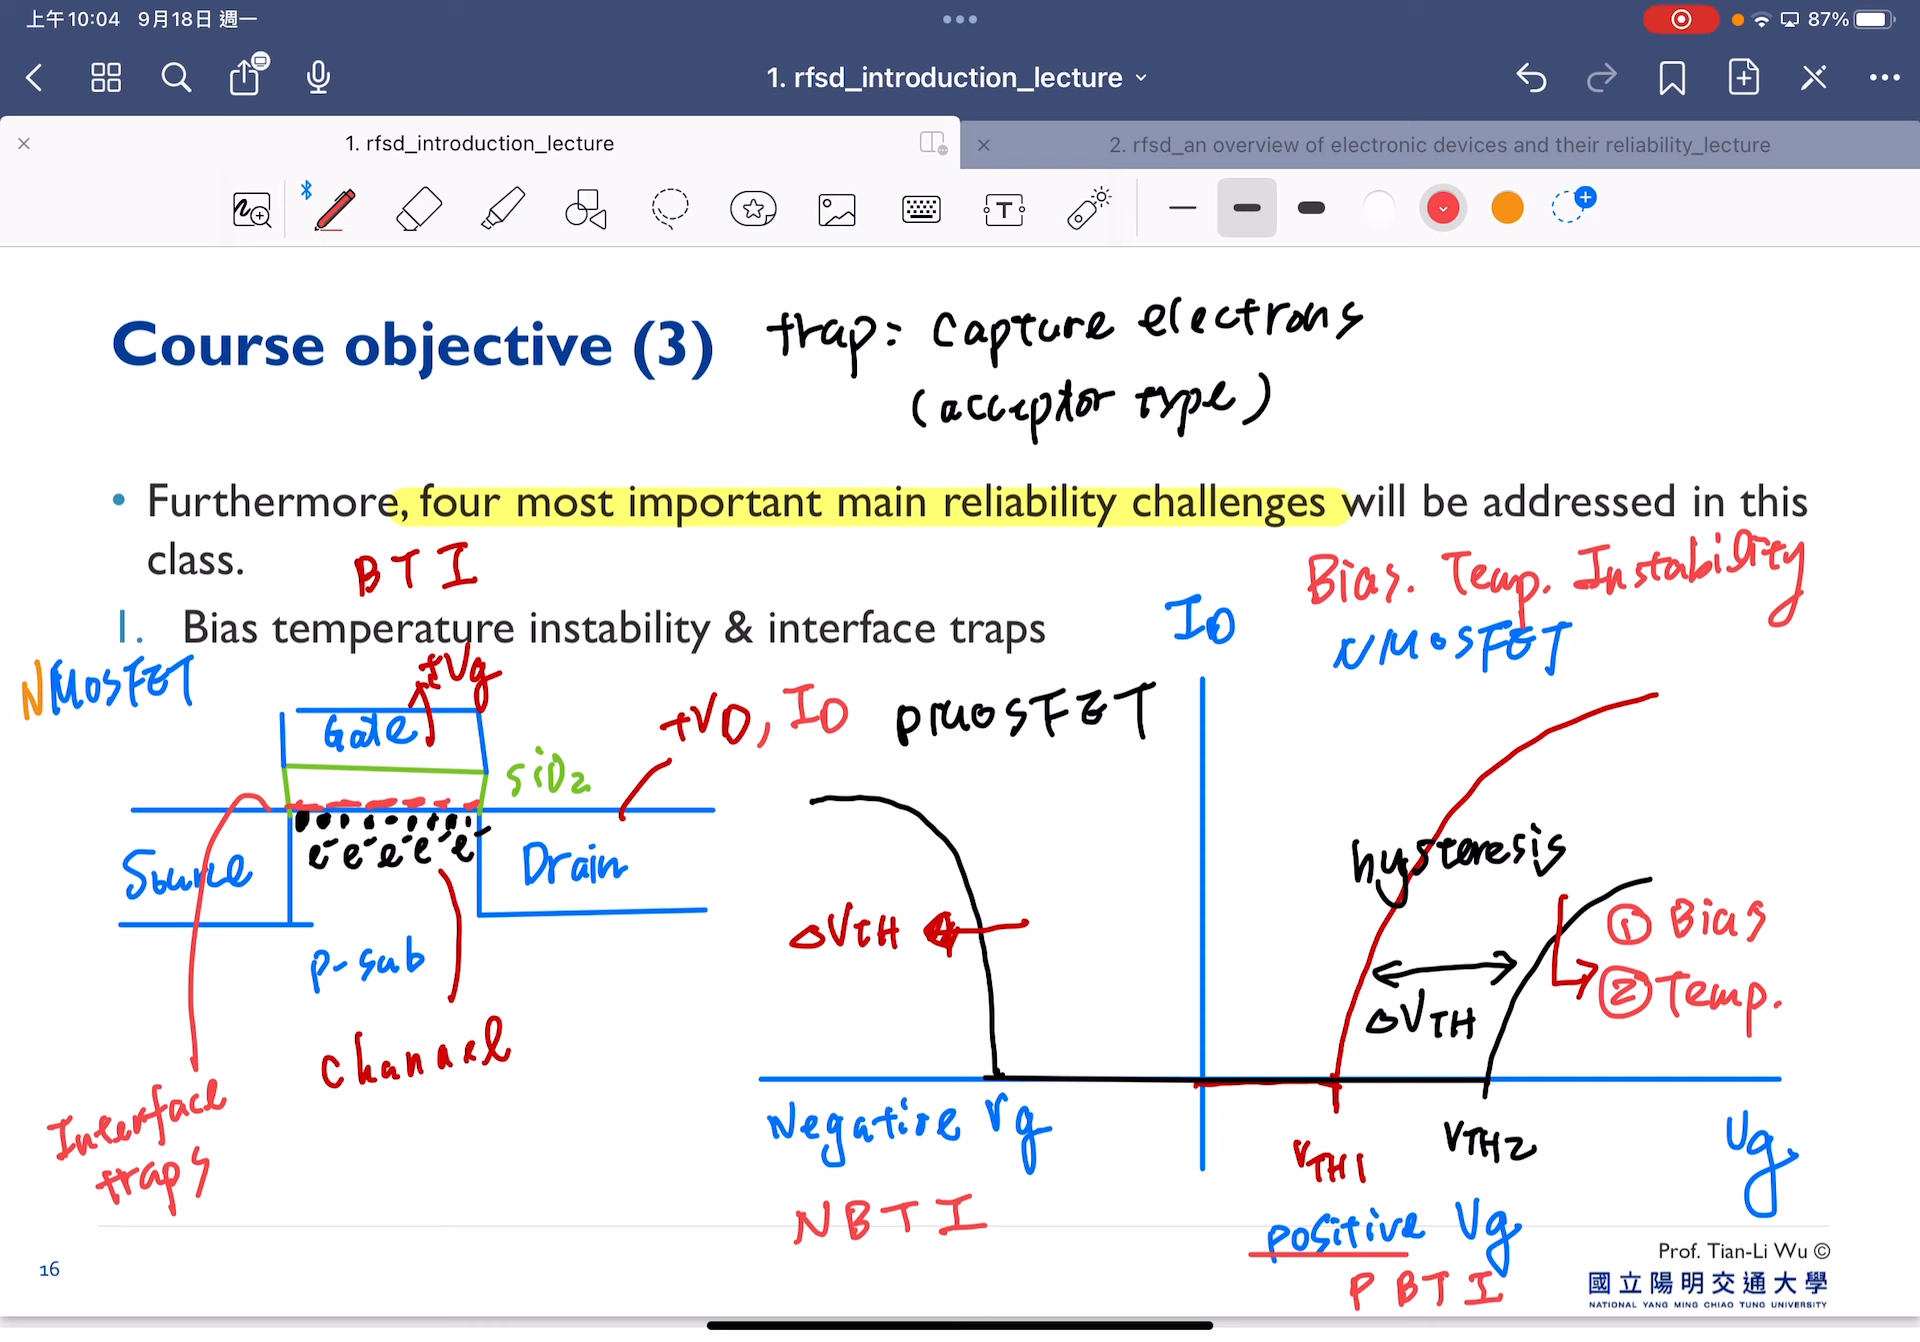 上午10:04 9月18日 週一
87%
1. rfsd_introduction_lecture
1. rfsd_introduction_lecture
2. rfsd_an overview of electronic devices and their reliability_lecture
T
Course objective (3)
trap: Capture electrons
(acceptor type)
• Furthermore, four most important main reliability challenges will be addressed in this
class.
BTI
Bias. Temp. Instability
1. Bias temperature instability & interface traps
ID
NMOSFET
NMOSFET
+Vg
Gate
+VD, ID
PMOSFET
SiO2
e- e- e- e- e-
Source
Drain
hysteresis
ΔVTH
① Bias
② Temp.
P-sub
ΔVTH
Channel
Interface
traps
Negative Vg
VTH1
VTH2
Vg
NBTI
positive Vg
PBTI
16
Prof. Tian-Li Wu ©
國立陽明交通大學
NATIONAL YANG MING CHIAO TUNG UNIVERSITY